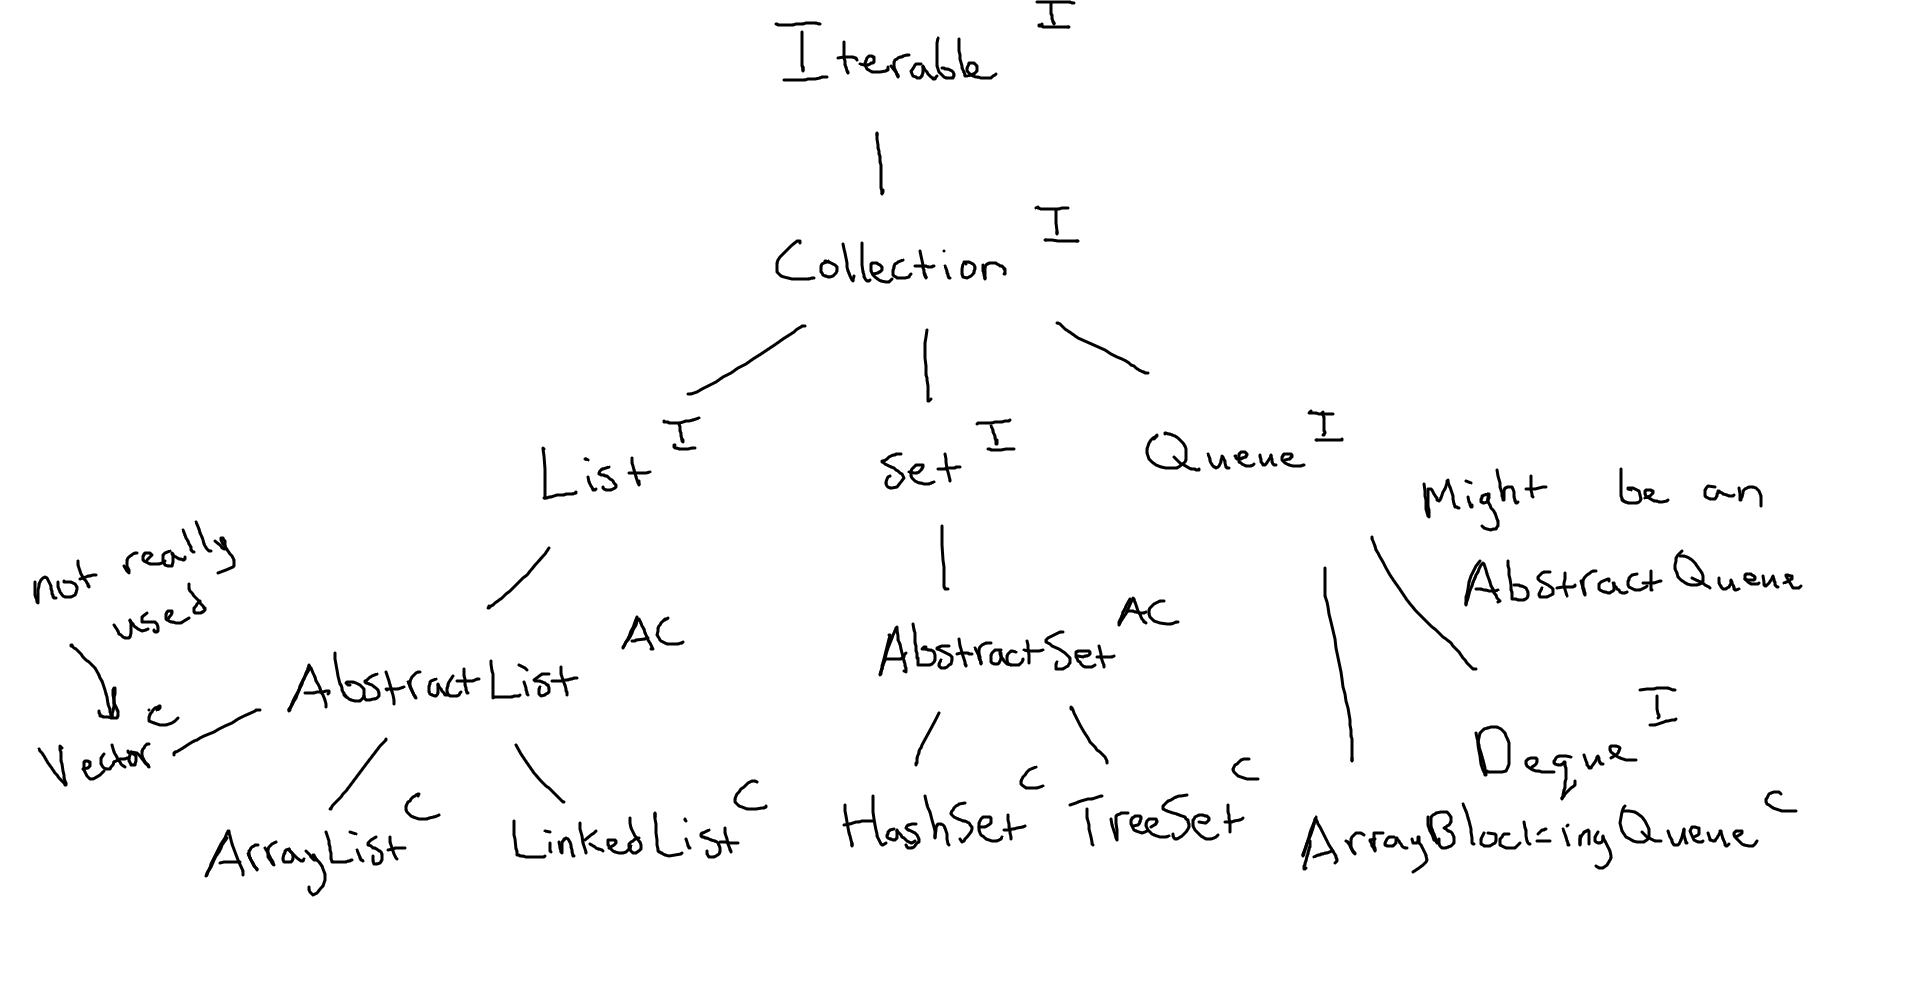 Iterable I
Collection I
List I
Set I
Queue I
Might be an
AbstractQueue
not really
used
AbstractList AC
AbstractSet AC
Vector C
Deque I
ArrayList C
LinkedList C
HashSet C
TreeSet C
ArrayBlockingQueue C